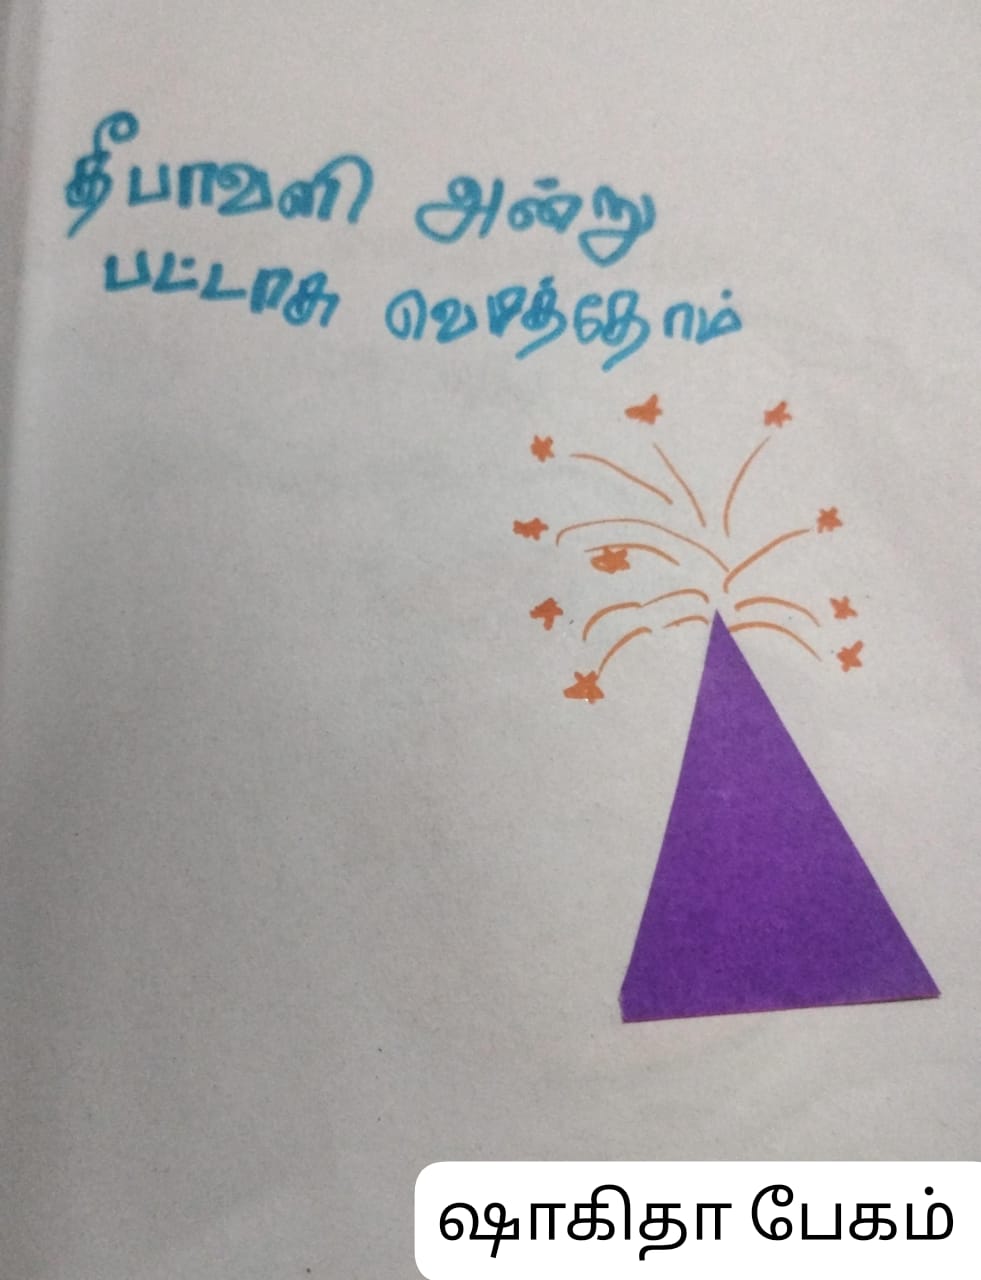 தீபாவளி அன்று
பட்டாசு வெடித்தோம்
ஷாகிதா பேகம்